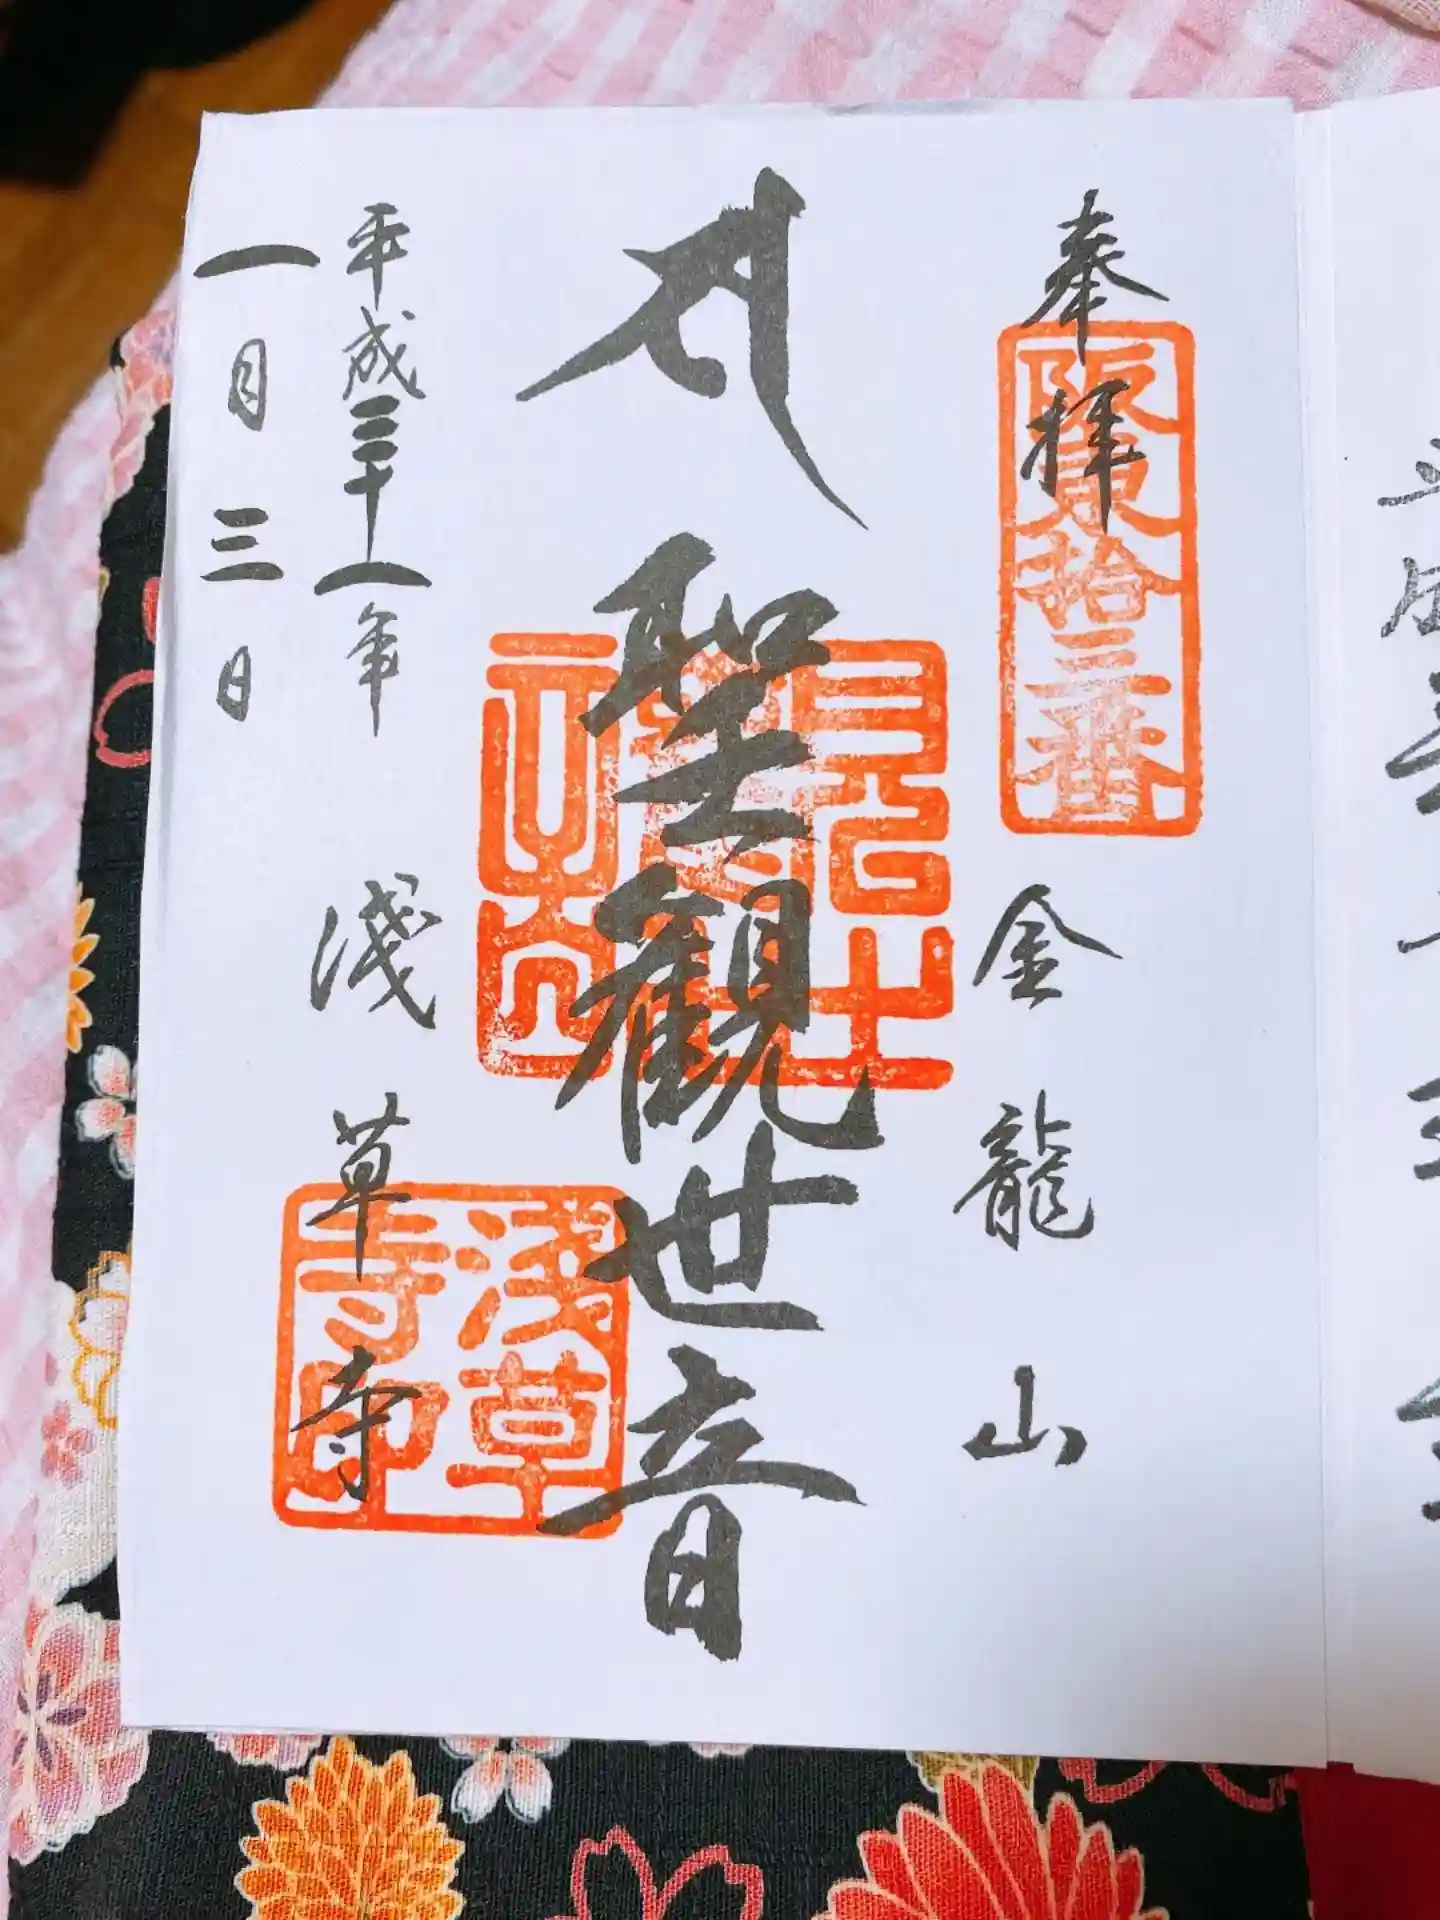 奉拝
阪東貮拾三番
金龍山
聖観世音
浅草寺印
平成三十一年
浅草寺
一月三日